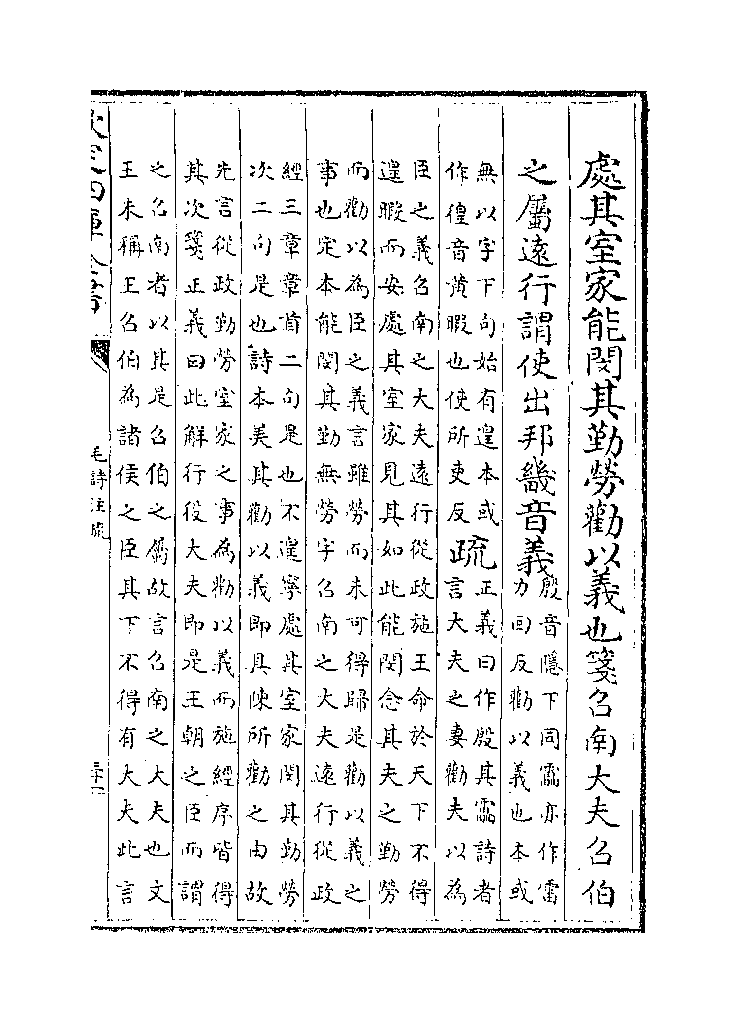 處其室家能閔其勤勞勸以義也箋召南大夫召伯
之屬遠行謂使出邦畿音義
殷音隱下同靁亦作雷
力回反勸以義也本或
無以字下句始有遑本或
作偟音黄暇也使所吏反
疏
正義曰作殷其靁詩者
言大夫之妻勸夫以為
臣之義召南之大夫遠行從政施王命於天下不得
遑暇而安處其室家見其如此能閔念其夫之勤勞
而勸以為臣之義言雖勞而未可得歸是勸以義之
事也定本能閔其勤無勞字召南之大夫遠行從政
經三章章首二句是也不遑寧處其室家閔其勤勞
次二句是也詩本美其勸以義即具陳所勸之由故
先言從政勤勞室家之事為勸以義而施經序皆得
其次箋正義曰此解行役大夫即是王朝之臣而謂
之召南者以其是召伯之屬故言召南之大夫也文
王未稱王召伯為諸侯之臣其下不得有大夫此言
欽定四庫全書
毛詩注疏